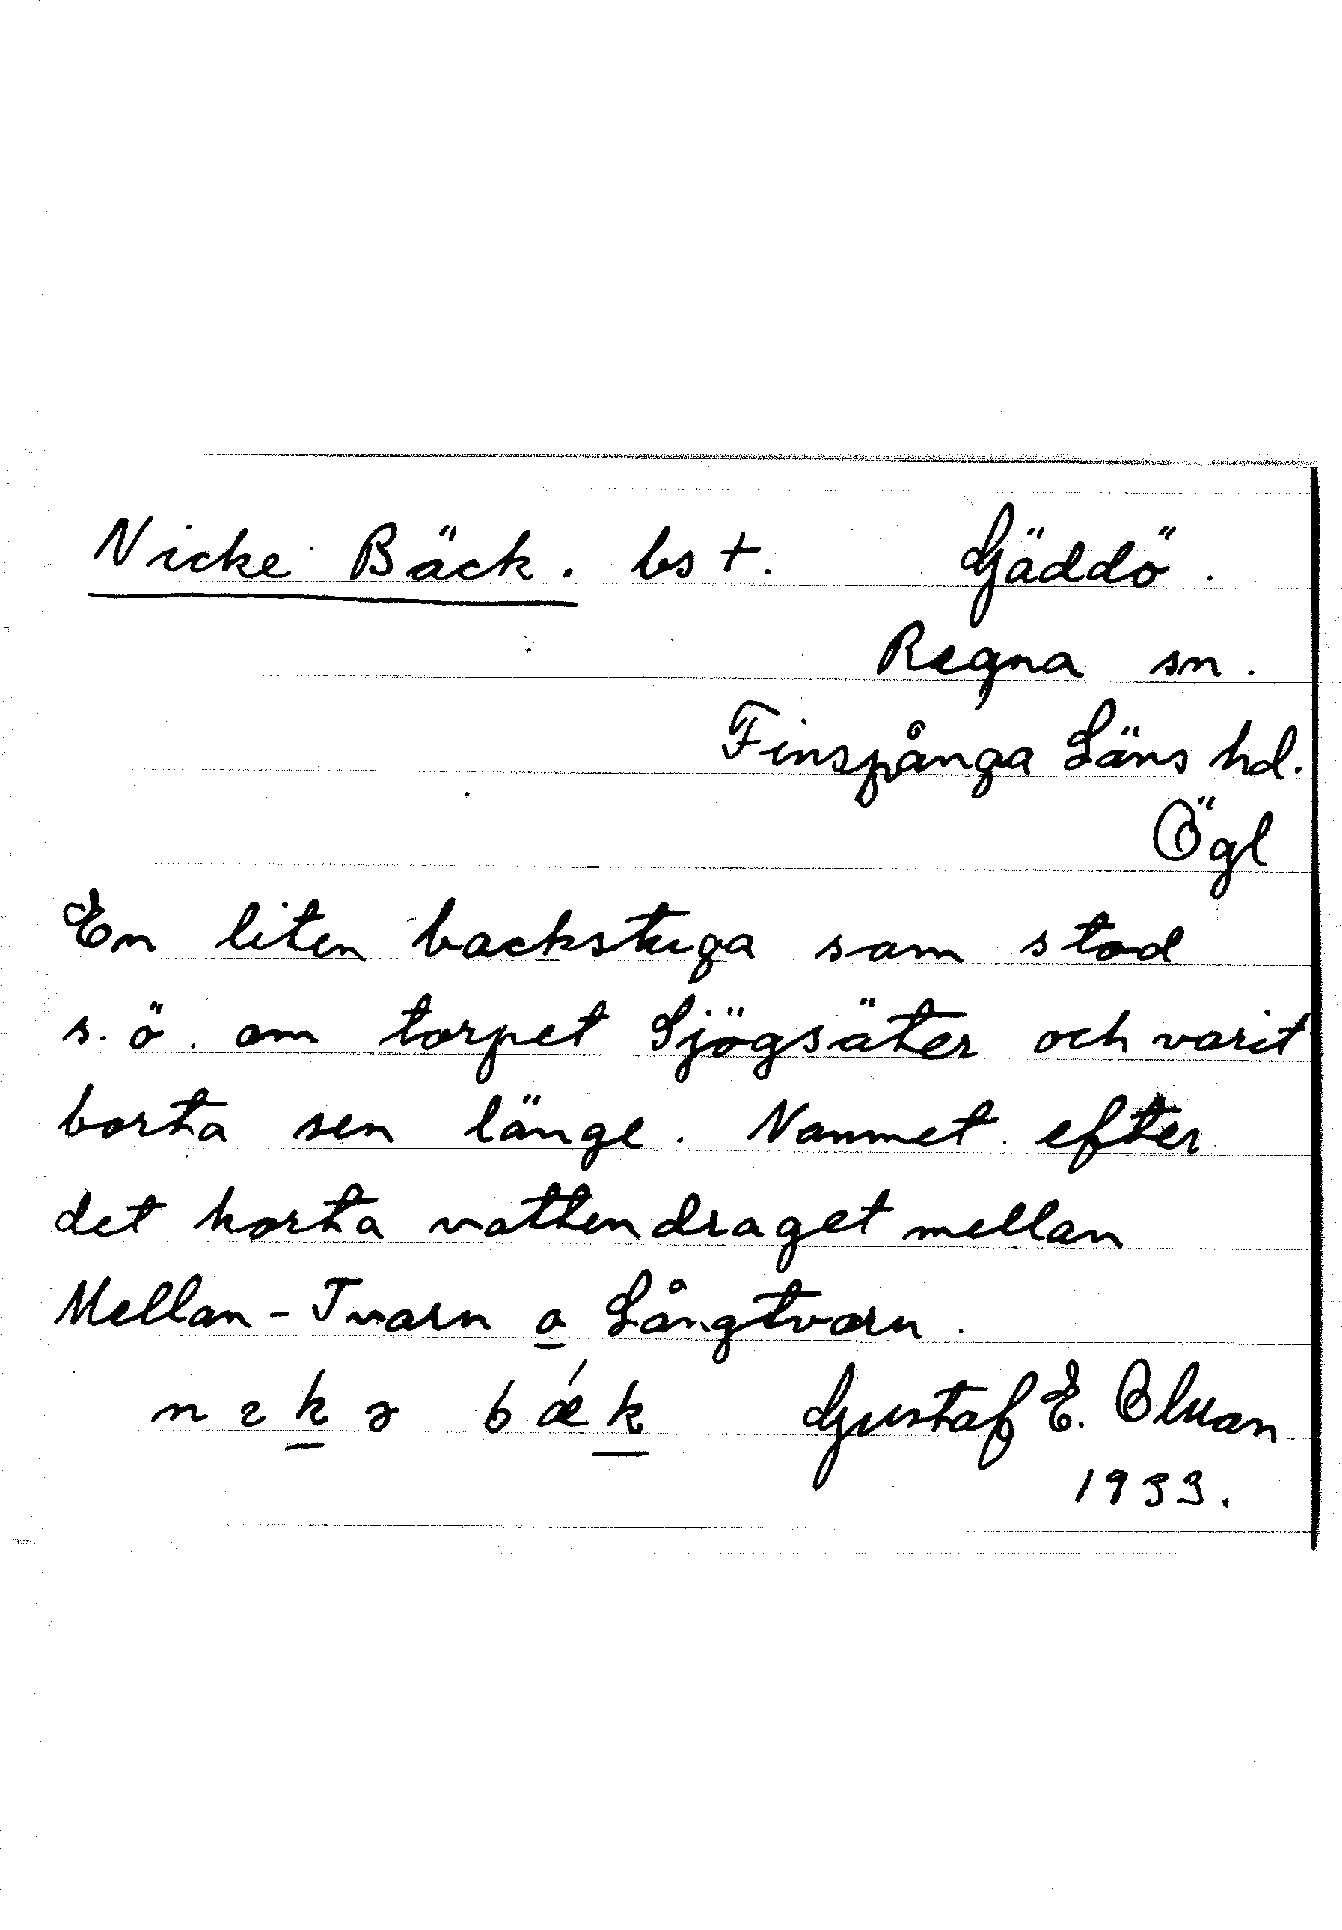 Nicke Bäck. bst. Gäddö.
Regna sn.
Finspånga Läns hd.
Ögl
En liten backstuga som stod
s. ö. om torpet Sjögsäter och varit
borta sen länge. Namnet efter
det korta vattendraget mellan
Mellan-Tvarn o Långtvarn.
bǽk Gustaf E.
1933.